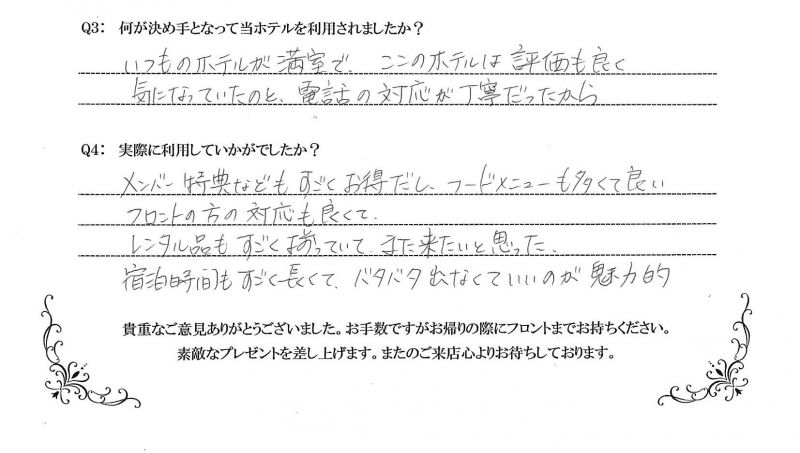 Q3： 何が決め手となって当ホテルを利用されましたか？
いつものホテルが満室で、ここのホテルは評価も良く
気になっていたのと、電話の対応が丁寧だったから
Q4： 実際に利用していかがでしたか？
メンバー特典などもすごくお得だし、フードメニューも多くて良い
フロントの方の対応も良くて、
レンタル品もすごく揃っていて、また来たいと思った、
宿泊時間もすごく長くて、バタバタ出なくていいのが魅力的
貴重なご意見ありがとうございました。お手数ですがお帰りの際にフロントまでお持ちください。
素敵なプレゼントを差し上げます。またのご来店心よりお待ちしております。